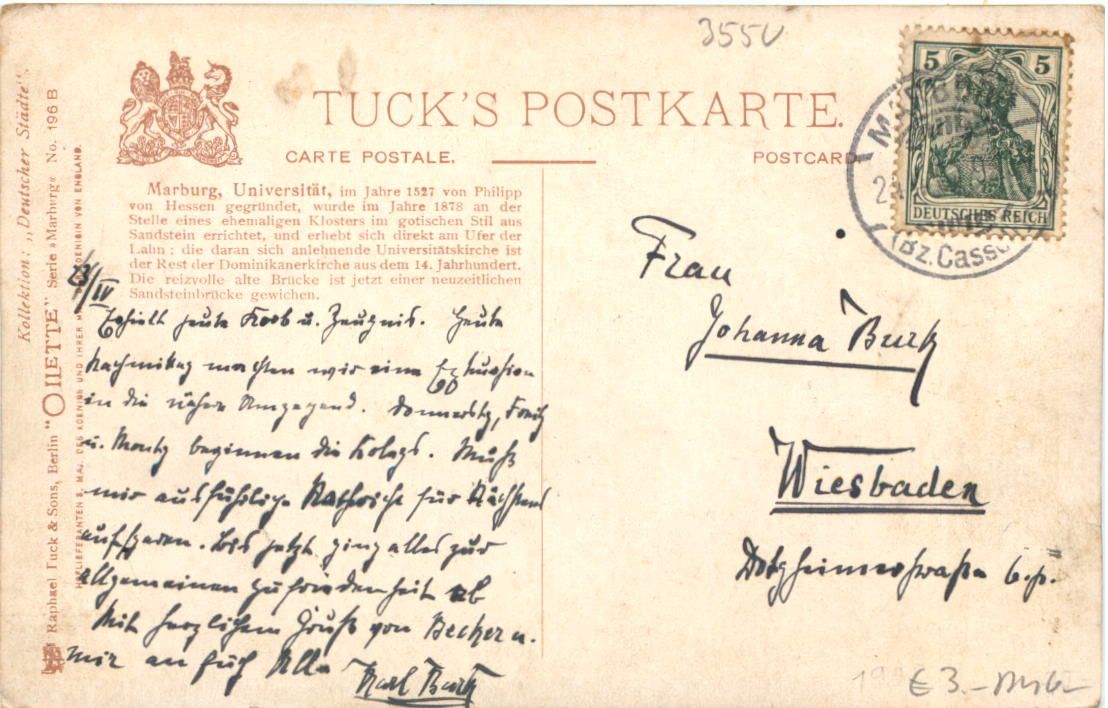 355U
TUCK'S POSTKARTE.
CARTE POSTALE.
POSTCARD
Marburg, Universität, im Jahre 1527 von Philipp
von Hessen gegründet, wurde im Jahre 1878 an der
Stelle eines ehemaligen Klosters im gotischen Stil aus
Sandstein errichtet, und erhebt sich direkt am Ufer der
Lahn; die daran sich anlehnende Universitätskirche ist
der Rest der Dominikanerkirche aus dem 14. Jahrhundert.
Die reizvolle alte Brücke ist jetzt einer neuzeitlichen
Sandsteinbrücke gewichen.
Kollektion: „Deutscher Städte".
Raphael Tuck & Sons, Berlin "OILETTE" Serie »Marburg« No. 196 B
HOFLIEFERANTEN S. MAJ. DES KOENIGS UND IHRER KOENIGIN VON ENGLAND.
23/IV
Erhielt heute Korb u. Zeugnis. Heute
Nachmittag machten wir eine Exkursion
in die nähere Umgegend. Donnerstg, Freitg
u. Montg beginnen die Kollegs. Muß
mir ausführliche Nachricht für Nächstens
aufsparen. Bis jetzt ging alles zur
Allgemeinen Zufriedenheit ab
Mit herzlichem Gruß von Becker u.
mir an Euch Alle
Karl Burk
5 5
DEUTSCHES REICH
(Bz. Cassel)
Frau
Johanna Burk
Wiesbaden
Dotzheimerstraße 6. p.
€ 3.-